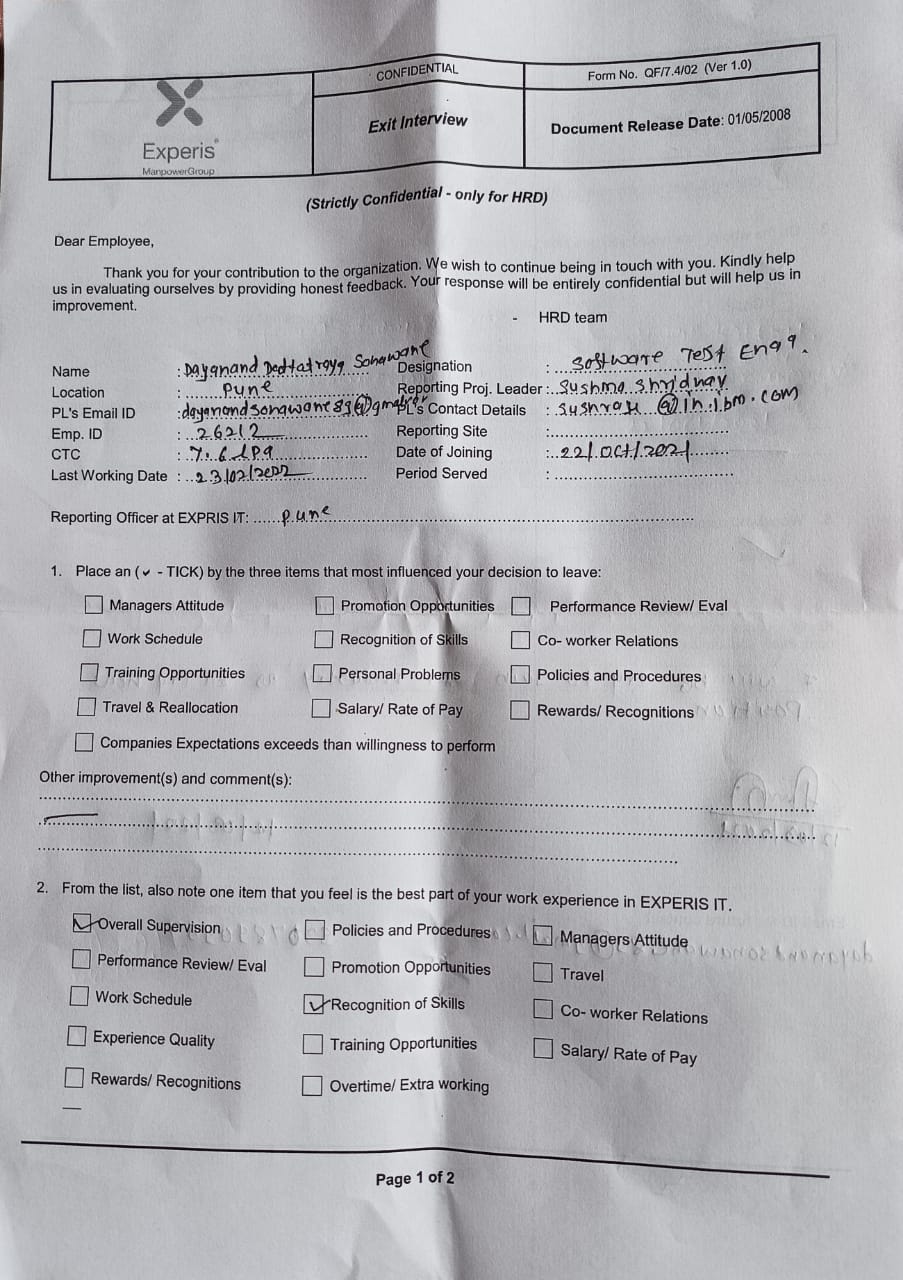 CONFIDENTIAL
Form No. QF/7.4/02 (Ver 1.0)
Experis
ManpowerGroup
Exit Interview
Document Release Date: 01/05/2008
(Strictly Confidential - only for HRD)
Dear Employee,
Thank you for your contribution to the organization. We wish to continue being in touch with you. Kindly help
us in evaluating ourselves by providing honest feedback. Your response will be entirely confidential but will help us in
improvement.
- HRD team
Name : Dayanand Dattatraya Sonawane Designation : Software Test Engg.
Location : Pune Reporting Proj. Leader : Sushma Shridhar
PL's Email ID : dayanandsonawane89@gmail PL's Contact Details : @in.ibm.com
Emp. ID : 26212 Reporting Site :
CTC : 7.6 LPA Date of Joining : 22/Oct/2021
Last Working Date : 23/02/2022 Period Served :
Reporting Officer at EXPRIS IT: Pune
1. Place an (✓ - TICK) by the three items that most influenced your decision to leave:
Managers Attitude Promotion Opportunities Performance Review/ Eval
Work Schedule Recognition of Skills Co- worker Relations
Training Opportunities Personal Problems Policies and Procedures
Travel & Reallocation Salary/ Rate of Pay Rewards/ Recognitions
Companies Expectations exceeds than willingness to perform
Other improvement(s) and comment(s):
2. From the list, also note one item that you feel is the best part of your work experience in EXPERIS IT.
Overall Supervision Policies and Procedures Managers Attitude
Performance Review/ Eval Promotion Opportunities Travel
Work Schedule Recognition of Skills Co- worker Relations
Experience Quality Training Opportunities Salary/ Rate of Pay
Rewards/ Recognitions Overtime/ Extra working
Page 1 of 2